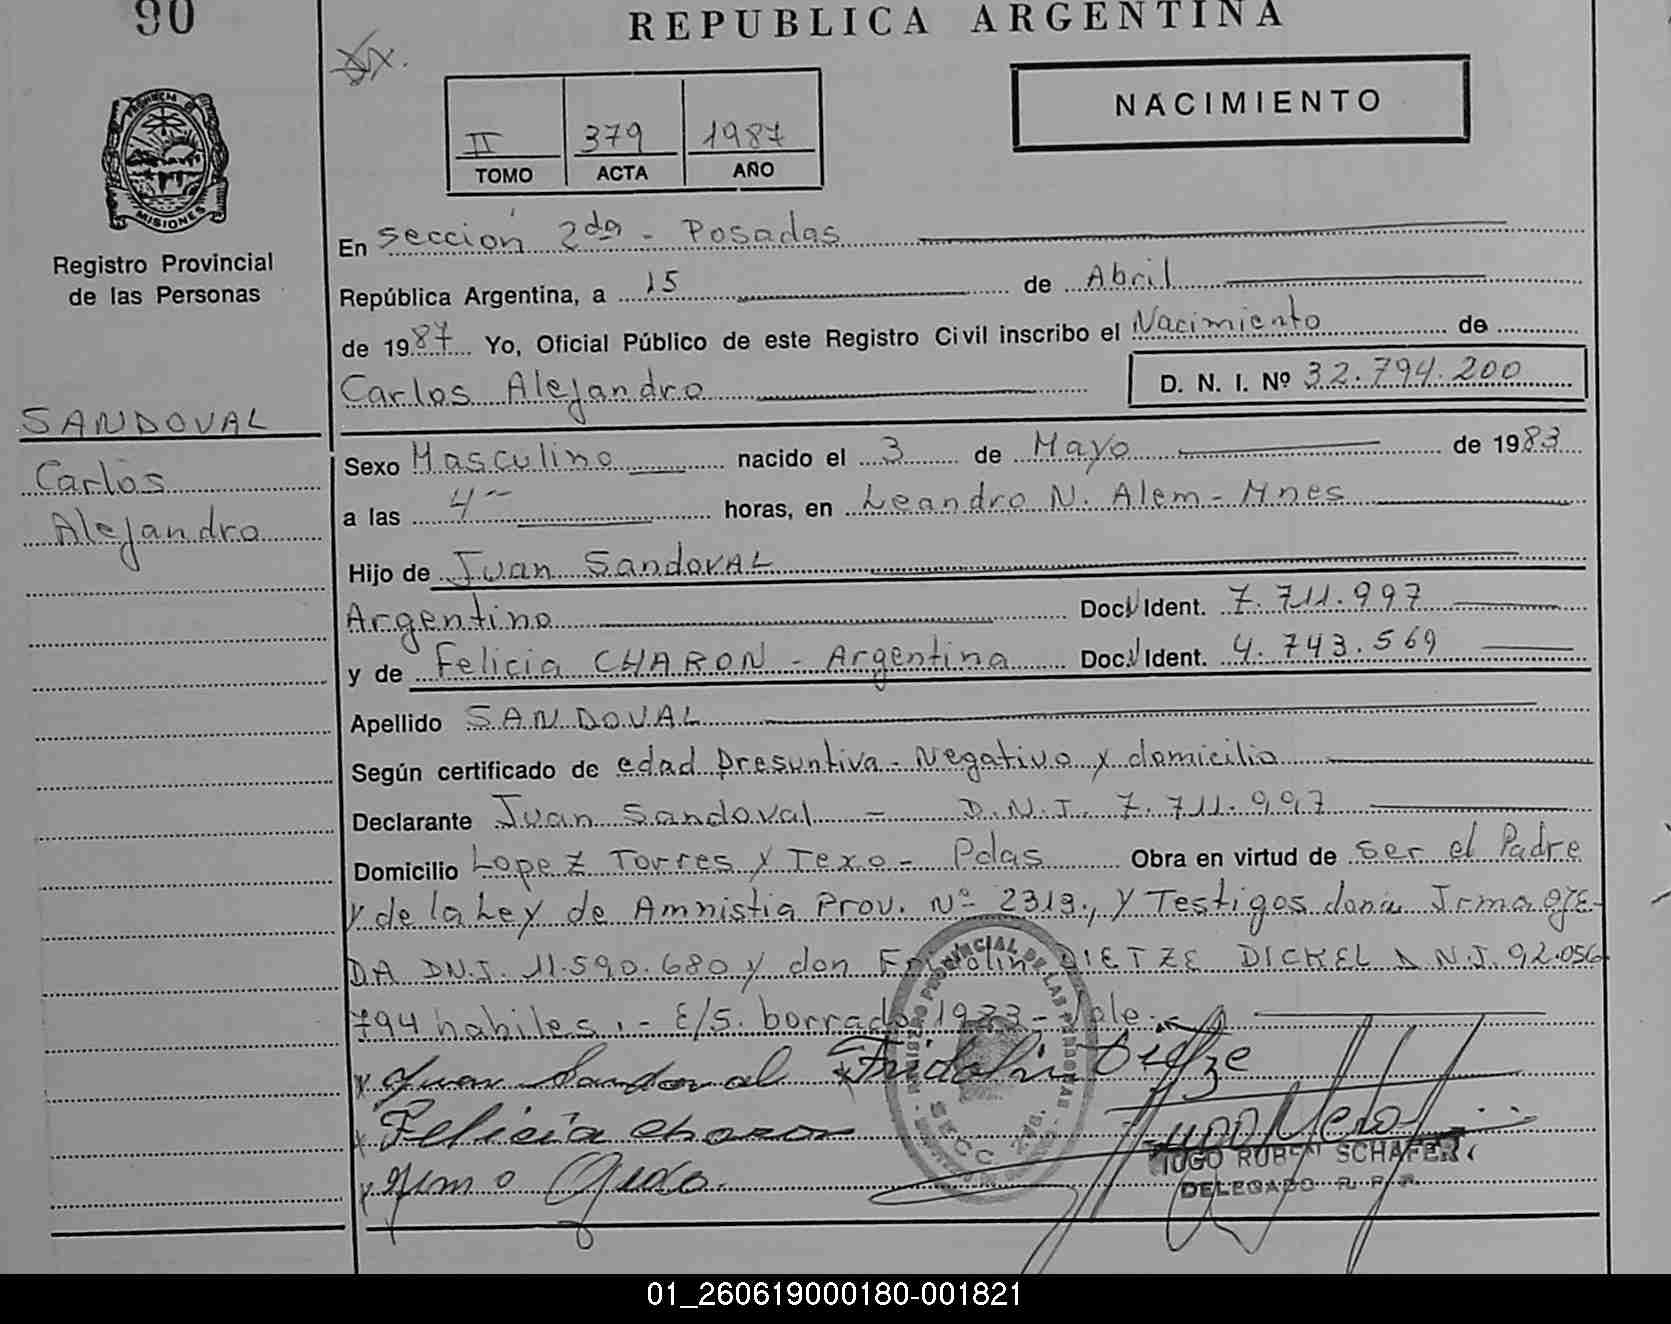 90
REPUBLICA ARGENTINA
II 379 1987
TOMO ACTA AÑO
NACIMIENTO
PROVINCIA DE
MISIONES
Registro Provincial
de las Personas
En sección 2da - Posadas
República Argentina, a 15 de Abril
de 1987 Yo, Oficial Público de este Registro Civil inscribo el Nacimiento de
Carlos Alejandro D. N. I. Nº 32.794.200
SANDOVAL
Carlos
Alejandro
Sexo Masculino nacido el 3 de Mayo de 1983
a las 4 horas, en Leandro N. Alem - Mnes
Hijo de Juan SandovAL
Argentino Doc. Ident. 7.711.997
y de Felicia CHARON - Argentina Doc. Ident. 4.743.569
Apellido SANDOVAL
Según certificado de edad Presuntiva - Negativo y domicilio
Declarante Juan Sandoval - D.N.I. 7.711.997
Domicilio Lopez Torres y Texo - Pdas Obra en virtud de ser el Padre
y de la Ley de Amnistia Prov. Nº 2313., y Testigos doña Irma OJE-
DA DNI. 11.590.680 y don DIETZE DICKEL D.N.I. 92.056
794 habiles. - E/S. borrado Vale.
x Juan Sandoval x Fridolin Dietze
x Felicia Charon
x Irma Ojeda.
HUGO RUBEN SCHAFER
DELEGADO R. P. P.
01_260619000180-001821